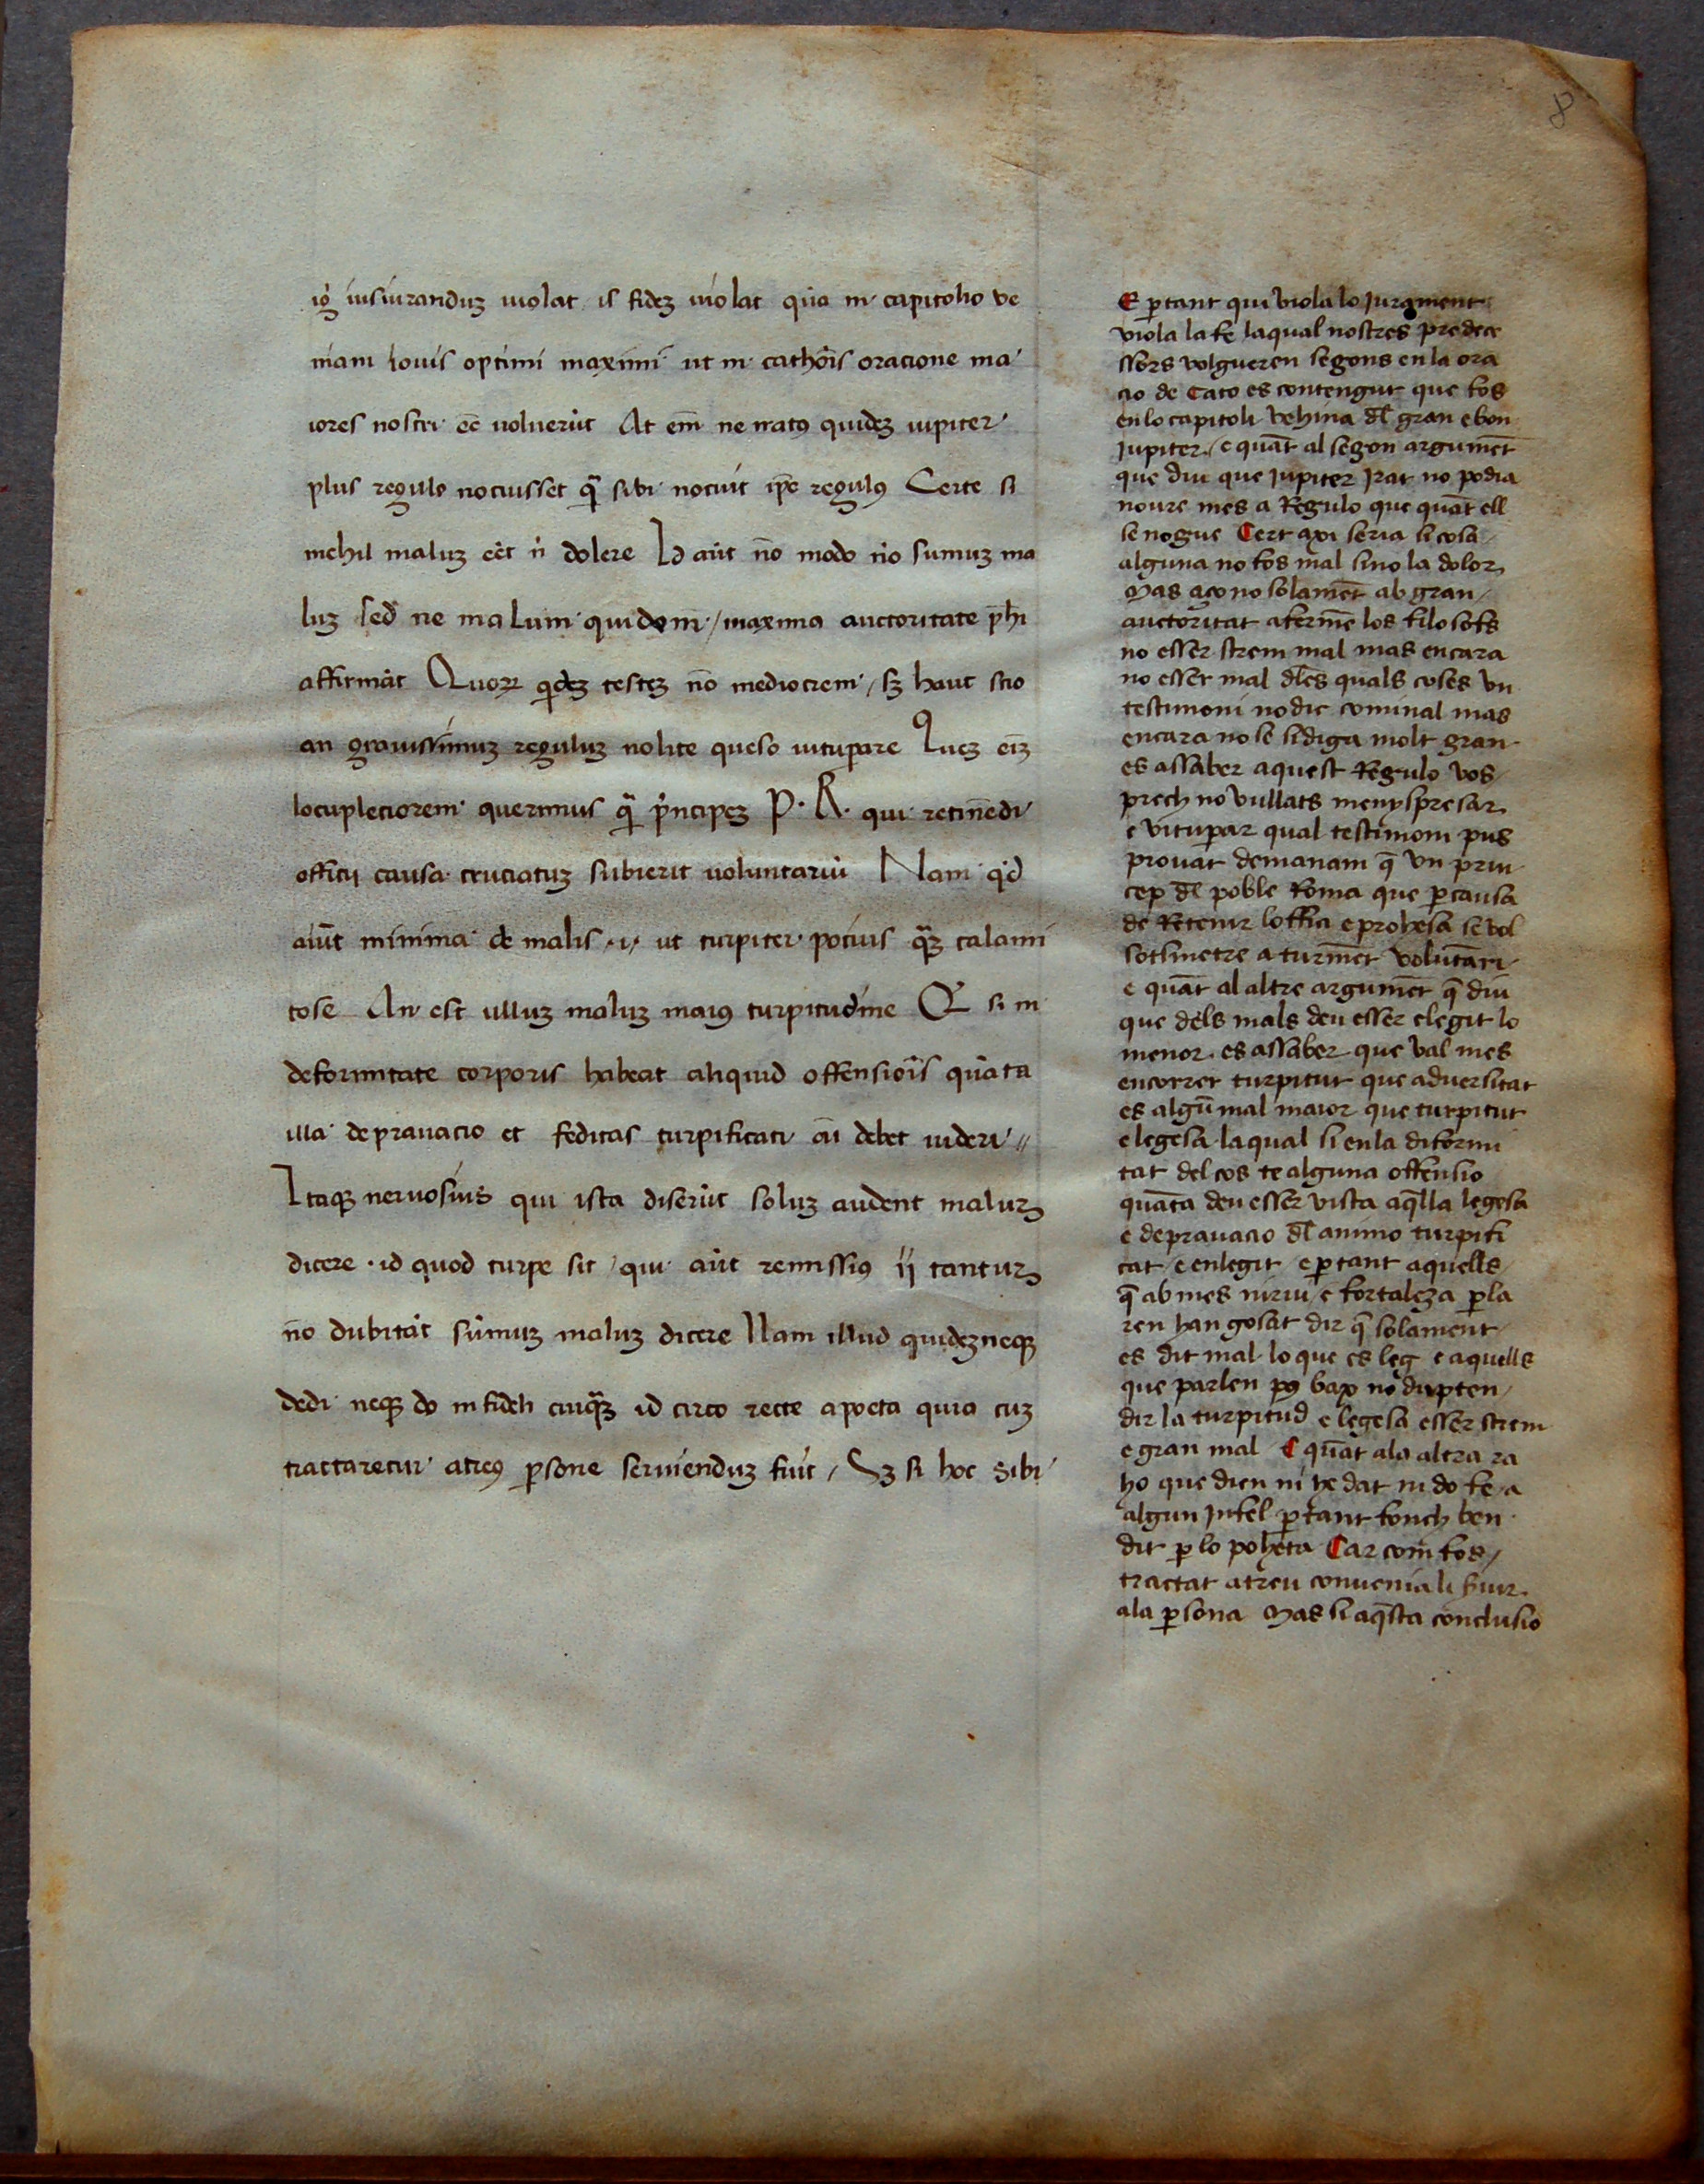 8
igr iusiuranduz uiolat is fidez uiolat quā in capitolio ve
cinam Iouis optimi maximi ut in cathōis oracione ma
iores nostri eē uoluerūt At enī ne iratꝰ quidez iupiter
plus regulo nocuisset q̄ sibi nocuit ip̄e regulꝰ Certe si
nichil maluz eēt ni dolere Id aūt nō modo nō sumuz ma
luz sed ne malum quidem / maxima auctoritate ph̄i
affirmāt Quoꝝ qidez testez nō mediocrem / sz haut scio
an grauissimuz reguluz nolite queso uitupare Quez eiz
locupleciorem querimus q̄ pīncipez P. R. qui retinēdi
officij causa cruciatuz subierit uoluntariū Nam qd
aiūt minima de malis .i. ut turpiter pocius q̄z calami
tose An est ulluz maluz maiꝰ turpitudine Q si in
deformitate corporis habeat aliquid offensiōis quāta
illa deprauacio et feditas turpificati aī debet uideri //
Itaqꝫ neruosius qui ista diserūt soluz audent maluz
dicere . id quod turpe sit / qui aūt remissiꝰ ij tantuz
nō dubitāt sūmuz maluz dicere Nam illud quidez neqꝫ
dedi neqꝫ do infideli cuiq̄z id circo recte a poeta quia cuz
tractaretur atreꝰ ꝑsone seruienduz fuit / Sz si hoc sibi
E ꝑtant qui viola lo Jurament
viola la fe laqual nostres predece
ssors volgueren segons en la ora
cio de Cato es contengut que fos
en lo capitoli vehina dl̄ gran e bon
Jupiter / e quāt al segon argumēt
que diu que Jupiter Irat no podia
noure mes a Regulo que quāt ell
se nogue Cert axi seria si cosa
alguna no fos mal sino la dolor
Mas aço no solamēt ab gran
auctoritat afermē los filosofs
no esser strem mal mas encara
no esser mal dl̄es quals coses vn
testimoni no dic cominal mas
encara no se si diga molt gran
es assaber aquest Regulo vos
prech no vullats menyspresar
e vituꝑar qual testimoni pus
prouat demanam q̄ vn prin
cep dl̄ poble Roma que ꝑ causa
de Retenir loffici e prohesa se vol
sotsmetre a turmēt volūtari
e quāt al altre argumēt q̄ diu
que dels mals deu esser elegit lo
menor . es assaber que val mes
encorrer turpitut que aduersitat
es algū mal maior que turpitut
e legesa laqual si en la diformi
tat del cos te alguna offensio
quāta deu esser vista aq̄lla legesa
e deprauacio dl̄ animo turpifi
cat / e enlegit e ꝑtant aquells
q̄ ab mes niruī e fortaleza ꝑla
ren han gosat dir q̄ solament
es dit mal lo que es leg e aquells
que parlen pꝰ bax no dupten
dir la turpitud e legesa esser strem
e gran mal E quāt ala altra ra
ho que dien ni he dat ni do fe a
algun Infel ꝑtant fonch ben
dit ꝑ lo poheta Car com fos /
tractat atreu conuenia li s̄uir
ala ꝑsona Mas si aq̄sta conclusio